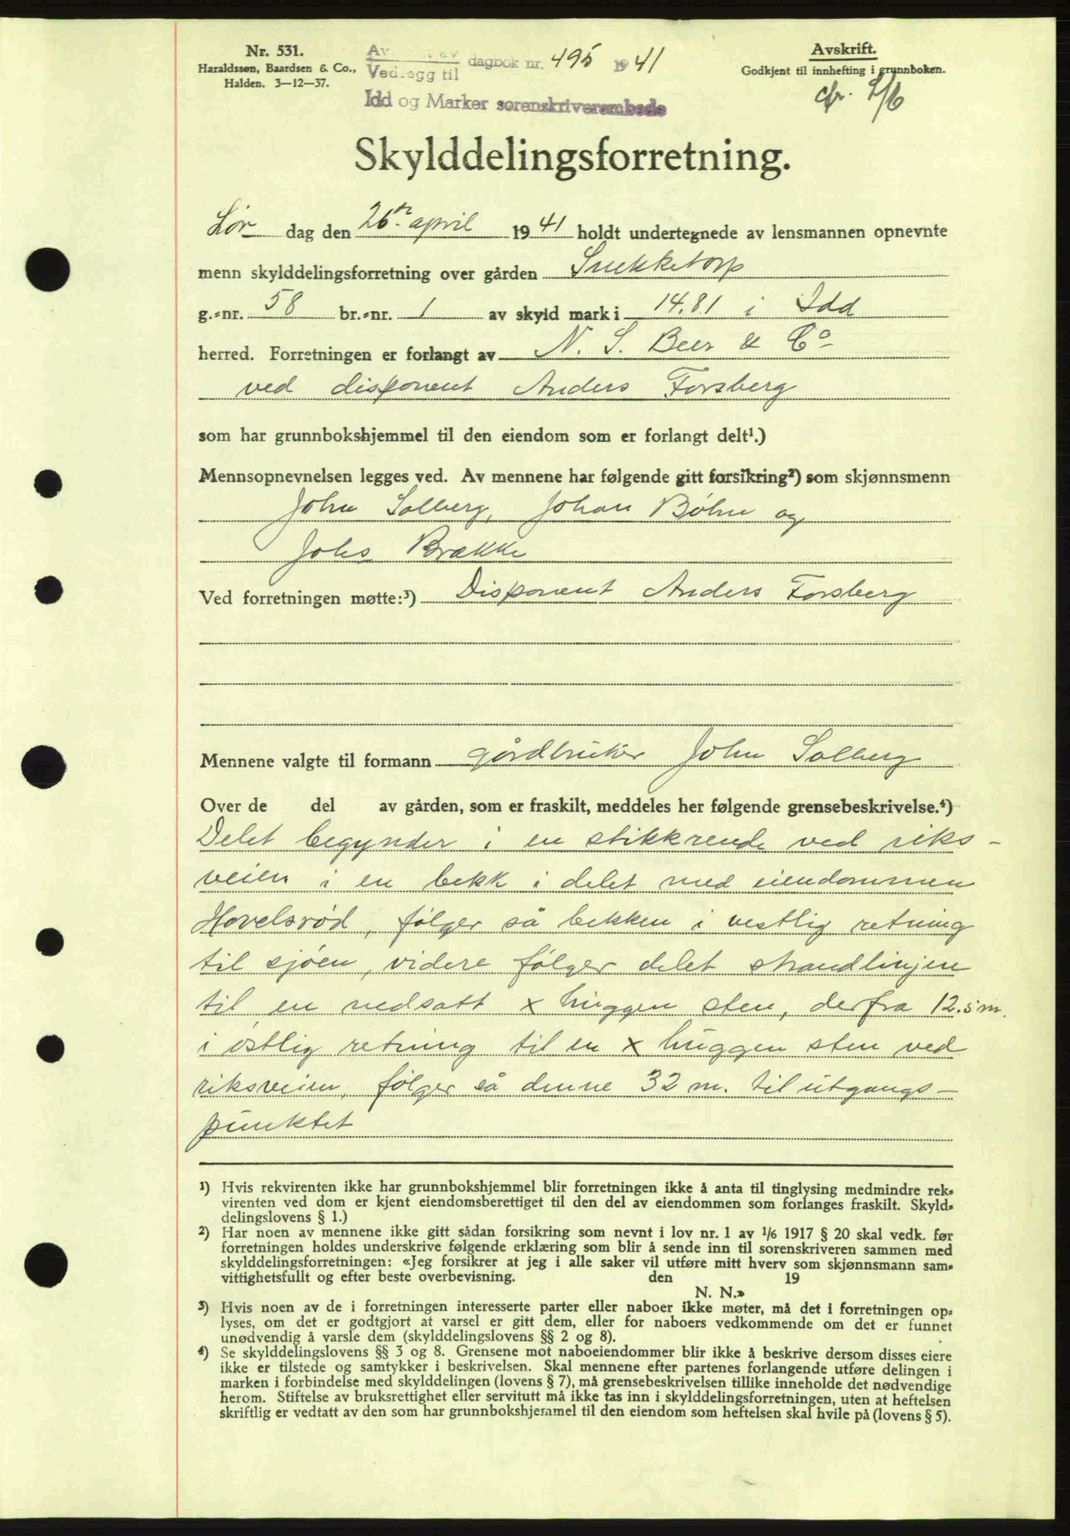 Nr. 531.
Haraldssen, Baardsen & Co.,
Halden. 3—12—37.
Vedlegg til dagbok nr. 495 1941
Idd og Marker sorenskriverembede
Avskrift.
Godkjent til innhefting i grunnboken.
cfr. 4/6
Skylddelingsforretning.
Lør dag den 26de april 1941 holdt undertegnede av lensmannen opnevnte
menn skylddelingsforretning over gården Snekketorp
g.-nr. 58 br.-nr. 1 av skyld mark i 14.81 i Idd
herred. Forretningen er forlangt av N. S. Beer & Co
ved disponent Anders Forsberg
som har grunnbokshjemmel til den eiendom som er forlangt delt¹.)
Mennsopnevnelsen legges ved. Av mennene har følgende gitt forsikring²) som skjønnsmenn
John Solberg, Johan Bøhn og
Johs Brække
Ved forretningen møtte:³) Disponent Anders Forsberg
Mennene valgte til formann gårdbruker John Solberg
Over de del av gården, som er fraskilt, meddeles her følgende grensebeskrivelse.⁴)
Delet begynder i en stikkrende ved riks-
veien i en bekk i delet med eiendommen
Hovelsrød, følger så bekken i vestlig retning
til sjøen, videre følger delet strandlinjen
til en nedsatt x huggen sten, derfra 12.5 m.
i østlig retning til en x huggen sten ved
riksveien, følger så denne 32 m. til utgangs-
punktet
¹) Hvis rekvirenten ikke har grunnbokshjemmel blir forretningen ikke å anta til tinglysing medmindre rek-
virenten ved dom er kjent eiendomsberettiget til den del av eiendommen som forlanges fraskilt. Skyld-
delingslovens § 1.)
²) Har noen av mennene ikke gitt sådan forsikring som nevnt i lov nr. 1 av 1/6 1917 § 20 skal vedk. før
forretningen holdes underskrive følgende erklæring som blir å sende inn til sorenskriveren sammen med
skylddelingsforretningen: «Jeg forsikrer at jeg i alle saker vil utføre mitt hverv som skjønnsmann sam-
vittighetsfullt og efter beste overbevisning. den 19
N. N.»
³) Hvis noen av de i forretningen interesserte parter eller naboer ikke møter, må det i forretningen op-
lyses, om det er godtgjort at varsel er gitt dem, eller for naboers vedkommende om det er funnet
unødvendig å varsle dem (skylddelingslovens §§ 2 og 8).
⁴) Se skylddelingslovens §§ 3 og 8. Grensene mot naboeiendommer blir ikke å beskrive dersom disses eiere
ikke er tilstede og samtykker i beskrivelsen. Skal mennene efter partenes forlangende utføre delingen i
marken i forbindelse med skylddelingen (lovens § 7), må grensebeskrivelsen tillike inneholde det nødvendige
herom. Stiftelse av bruksrettighet eller servitutt må ikke tas inn i skylddelingsforretningen, uten at heftelsen
skriftlig er vedtatt av den som har grunnbokshjemmel til den eiendom som heftelsen skal hvile på (lovens § 5).